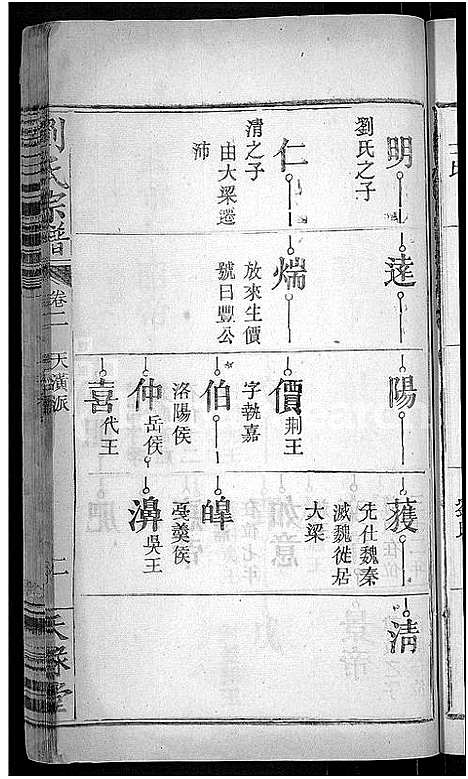 明
劉氏之子
達
陽
獲
先仕魏秦
滅魏徙居
大梁
清
仁
清之子
由大梁遷
沛
煓
放來生價
號曰豐公
價
荆王
字執嘉
伯
洛陽侯
㷛
羹侯
仲
岳侯
濞
吳王
喜
代王
劉氏宗譜
卷二
天潢派
二